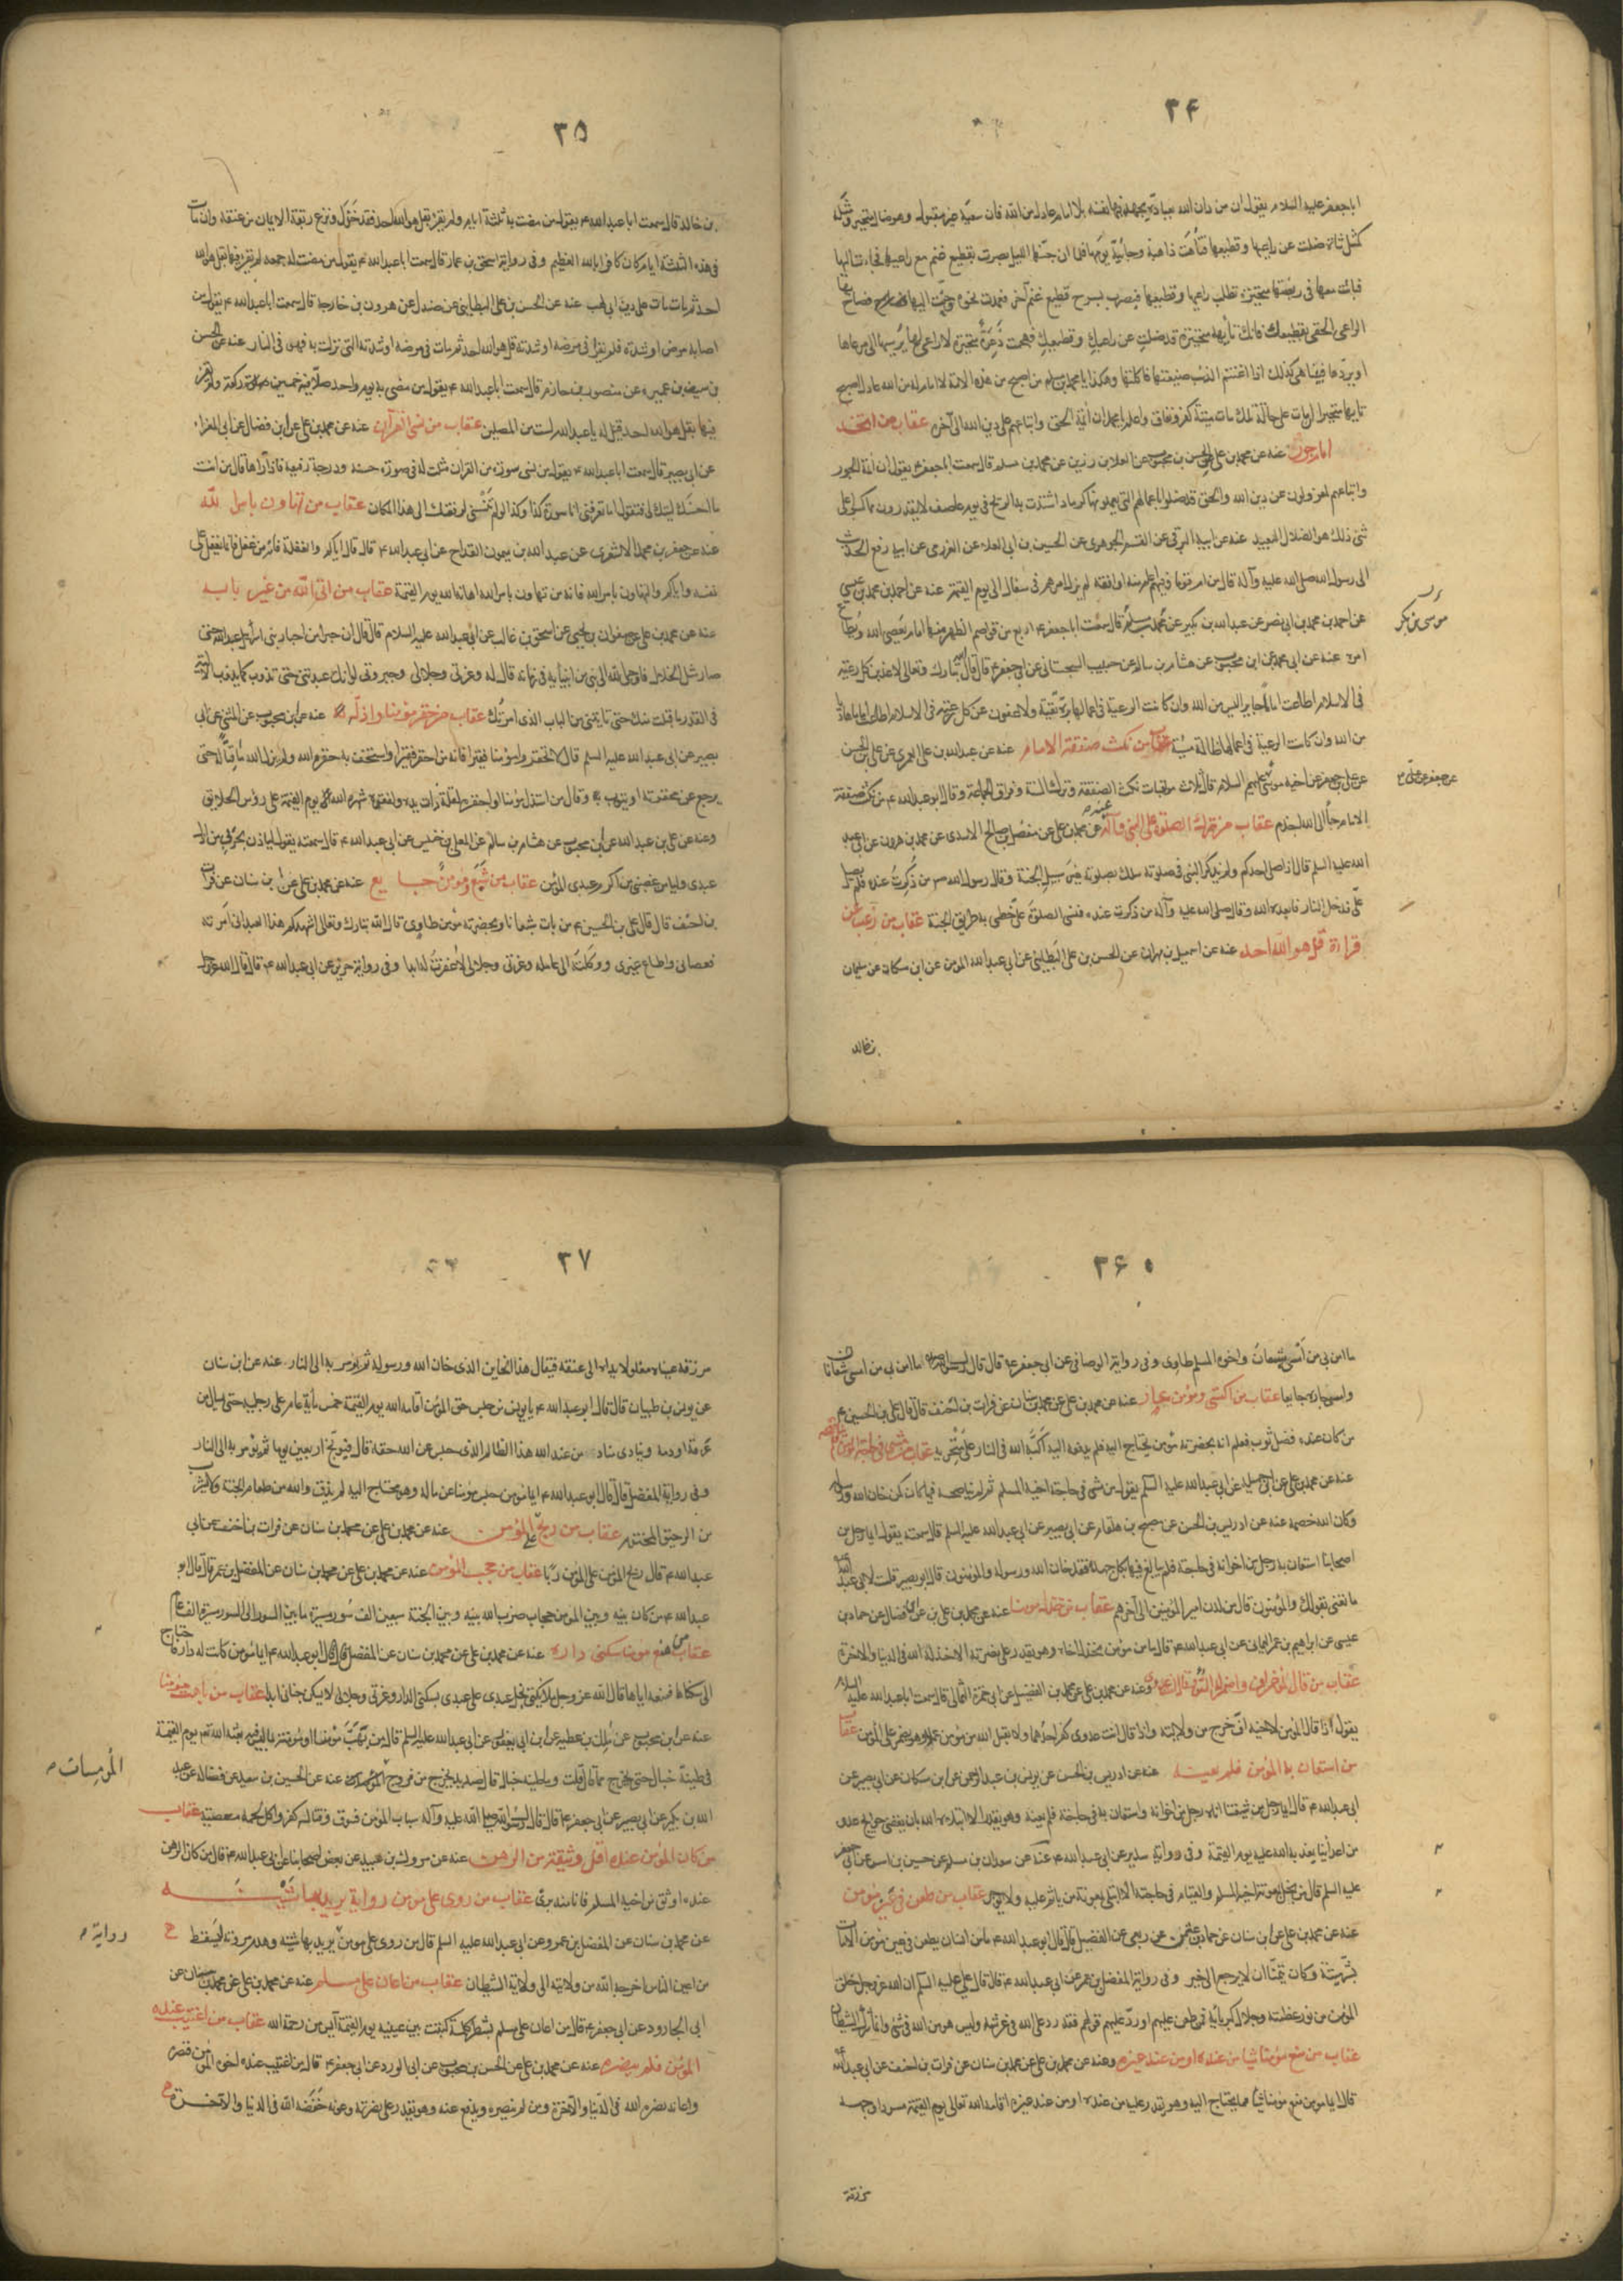 ٣۴
ابا جعفر عليه السلام يقول ان من دان الله بعبادة يجهد فيها نفسه بلا امام عادل من الله فان سعيه غير مقبول وهو ضال متحير
كمثل شاة ضلت عن راعيها وقطيعها فتاهت ذاهبة وجائية يومها فلما ان جنها الليل بصرت بقطيع غنم مع راعيها فجاءت اليها
فباتت معها في ربضتها متحيرة تطلب راعيها وقطيعها فبصرت بسرح قطيع غنم آخر فعمدت نحوه وحنت اليها فصاح بها
الراعي الحقي بقطيعك فانك تايهة متحيرة قد ضللت عن راعيك وقطيعك فهجمت ذعرة متحيرة لا راعي لها يرشدها الى مرعاها
او يردها فبينا هي كذلك اذا اغتنم الذئب ضيعتها فاكلها وهكذا يا محمد بن مسلم من اصبح من هذه الامة لا امام له من الله عادل اصبح
تايها متحيرا ان مات على حاله تلك مات ميتة كفر ونفاق واعلم يا محمد ان ائمة الحق واتباعهم على دين الله الى آخره عقاب من اتخذ
امام جور عنه عن محمد بن علي عن الحسن بن محبوب عن العلا بن رزين عن محمد بن مسلم قال سمعت ابا جعفر ع يقول ان ائمة الجور
واتباعهم لمعزولون عن دين الله والحق قد ضلوا باعمالهم التي يعملونها كرماد اشتدت به الريح في يوم عاصف لا يقدرون مما كسبوا على
شئ ذلك هو الضلال البعيد عنه عن ابيه البرقي عن القسم الجوهري عن الحسين بن ابي العلاء عن العرزمي عن ابيه رفع الحديث
الى رسول الله صلى الله عليه وآله قال من ام قوما وفيهم اعلم منه او افقه لم يزل امرهم في سفال الى يوم القيمة عنه عن احمد بن محمد بن عيسى
عن احمد بن محمد بن ابي نصر عن عبد الله بن بكير عن محمد بن مسلم قال سمعت ابا جعفر ع اربع من قواصم الظهر منها امام يعصي الله ويطاع
موسى بن بكر
امره عنه عن ابي محمد عن ابن محبوب عن هشام بن سالم عن حبيب السجستاني عن ابي جعفر ع قال قال الله تبارك وتعالى لاعذبن كل رعية
في الاسلام اطاعت اماما جايرا ليس من الله وان كانت الرعية في اعمالها برة تقية ولاعفون عن كل رعية في الاسلام اطاعت اماما هاديا
من الله وان كانت الرعية في اعمالها ظالمة مسيئة عقاب من نكث صفقة الامام عنه عن عبد الله بن علي العمري عن علي بن الحسن
عن علي بن جعفر عن اخيه موسى عليهم السلام قال ثلاث موبقات نكث الصفقة وترك السنة وفراق الجماعة وقال ابو عبد الله ع من نكث صفقة
الامام جاء الى الله اجذم عقاب من ترك الصلوة على النبي وآله عنه عن محمد بن علي عن مفضل بن صالح الاسدي عن محمد بن هرون عن ابي عبد
الله عليه السلم قال اذا صلى احدكم ولم يذكر النبي في صلوته سلك بصلوته غير سبيل الجنة وقال رسول الله ص من ذكرت عنده فلم يصل
علي دخل النار فابعده الله وقال صلى الله عليه وآله من ذكرت عنده فنسي الصلوة علي خطي به طريق الجنة عقاب من رغب عن
قراءة قل هو الله احد عنه عن اسمعيل بن مهران عن الحسن بن علي البطايني عن ابي عبد الله المؤمن عن ابن مسكان عن سليمان
بن خالد
٣۵
بن خالد قال سمعت ابا عبد الله ع يقول من مضت به ثلثة ايام ولم يقرأ بقل هو الله احد فقد خذل ونزع ربقة الايمان من عنقه وان مات
في هذه الثلثة ايام كان كافرا بالله العظيم وفي رواية اسحق بن عمار قال سمعت ابا عبد الله ع يقول من مضت له جمعه لم يقرء فيها بقل هو الله
احد ثم مات مات على دين ابي لهب عنه عن الحسن بن علي البطايني عن صندل عن هرون بن خارجة قال سمعت ابا عبد الله ع يقول من
اصابه مرض او شدة فلم يقرا في مرضه او شدته قل هو الله احد ثم مات في مرضه او شدته التي نزلت به فهو في النار عنه عن الحسن
بن سيف بن عميره عن منصور بن حازم قال سمعت ابا عبد الله ع يقول من مضى به يوم واحد صلا فيه خمسين صلوة ركعة ولم يقرء
فيها بقل هو الله احد قيل له يا عبد الله لست من المصلين عقاب من نسي القرآن عنه عن محمد بن علي عن ابن فضال عن ابي المغراء
عن ابي بصير قال سمعت ابا عبد الله ع يقول من نسى سورة من القران مثلت له في صورة حسنة ودرجة رفيعة فاذا رآها قال من انت
ما احسنك ليتك لي فتقول اما تعرفني انا سورة كذا وكذا لو لم تنسني لرفعتك الى هذا المكان عقاب من تهاون بامر الله
عنه عن جعفر بن محمد الاشعري عن عبد الله بن ميمون القداح عن ابي عبد الله ع قال قال اياكم والغفلة فانه من غفل فانما يغفل على
نفسه واياكم والتهاون بامر الله فانه من تهاون بامر الله اهانه الله يوم القيمة عقاب من اتى الله من غير بابه
عنه عن محمد بن علي عن صفوان بن يحيى عن اسحق بن غالب عن ابي عبد الله عليه السلام قال قال ان حبرا من احبار بني اسرائيل عبد الله حتى
صار مثل الخلال فاوحى الله الى نبي من انبيائه في زمانه قال له وعزتي وجلالي وجبروتي لو انك عبدتني حتى تذوب كما يذوب الالية
في القدر ما قبلت منك حتى تاتيني من الباب الذي امرتك عقاب من حقر مؤمنا واذله عنه عن ابن محبوب عن المثنى عن ابي
بصير عن ابي عبد الله عليه السلم قال لا تحقروا مؤمنا فقيرا فانه من احقر فقيرا واستخف به حقره الله ولم يزل الله ماقتا له حتى
يرجع عن محقرته او يتوب وقال من استذل مؤمنا او احقره لقلة ذات يده ولفقره شهره الله يوم القيمة على رؤس الخلايق
وعنه عن علي بن عبد الله عن ابن محبوب عن هشام بن سالم عن المعلى بن خنيس عن ابي عبد الله ع قال سمعته يقول ليأذن بحرب من اذل
عبدي وليامن غضبي من اكرم عبدي المؤمن عقاب من شبع ومؤمن جايع عنه عن محمد بن علي عن ابن سنان عن فرات
بن احنف قال قال علي بن الحسين ع من بات شبعانا وبحضرته مؤمن طاوي قال الله تبارك وتعالى اشهدكم هذا العبد اني امرته
فعصاني واطاع غيري ووكلته الى عمله وعزتي وجلالي لا غفرت له ابدا وفي رواية حريز عن ابي عبد الله ع قال قال الله عز وجل
٣۶
ما امن بي من امسى شبعان واخوه المسلم طاوي وفي رواية الوصافي عن ابي جعفر ع قال قال رسول الله ص ما امن بي من امسى شبعانا
وامسى جاره جايعا عقاب من اكتسى ومؤمن عار عنه عن محمد بن علي عن محمد بن سنان عن فرات بن احنف قال قال علي بن الحسين ع
من كان عنده فضل ثوب فعلم انه بحضرته مؤمن يحتاج اليه فلم يدفعه اليه اكبه الله في النار على منخريه عقاب من مشى في حاجة المؤمن
عنه عن محمد بن علي عن ابي جميلة عن ابي عبد الله عليه السلم يقول من مشى في حاجة اخيه المسلم ثم لم يناصحه فيها كان كمن خان الله ورسوله
وكان الله خصمه عنه عن ادريس بن الحسن عن مصبح بن هلقام عن ابي بصير عن ابي عبد الله عليه السلم قال سمعته يقول ايما رجل من
اصحابنا استعان به رجل من اخوانه في حاجة فلم يبالغ فيها بكل جهده فقد خان الله ورسوله والمؤمنون قال ابو بصير قلت لابي عبد الله
ما تعني بقولك والمؤمنون قال من لدن امير المؤمنين الى آخرهم عقاب من خذل مومنا عنه عن محمد بن علي عن ابن فضال عن حماد بن
عيسى عن ابراهيم بن عمر اليماني عن ابي عبد الله ع قال ما من مؤمن يخذل اخاه وهو يقدر على نصرته الا خذله الله في الدنيا والاخرة
عنه عن محمد بن علي عن محمد بن الفضيل عن ابي حمزة الثمالي قال سمعت ابا عبد الله عليه السلام
يقول اذا قال المؤمن لاخيه اف خرج من ولايته واذا قال انت عدوي كفر احدهما ولا يقبل الله من مؤمن عملا وهو يضمر على المؤمن عقاب
من استعان به المؤمن فلم يعينه عنه عن ادريس بن الحسن عن يونس بن عبد الرحمن عن ابن مسكان عن ابي بصير عن
ابي عبد الله ع قال ايما رجل من شيعتنا اتاه رجل من اخوانه واستعان به في حاجة فلم يعينه وهو يقدر الا ابتلاه الله بان يقضي حوايج عدو
من اعدائنا يعذبه الله عليه يوم القيمة وفي رواية سدير عن ابي عبد الله ع عنه عن سعدان بن مسلم عن حسين بن انس عن ابي جعفر
عليه السلم قال من بخل بمعونة اخيه المسلم والقيام في حاجته الا ابتلى بمعونة من ياثم عليه ولا يوجر عقاب من طعن في عين مؤمن
عنه عن محمد بن علي عن ابن سنان عن حماد بن عثمن عن ربعي عن الفضيل قال قال ابو عبد الله ع ما من انسان يطعن في عين مؤمن الا مات
بشر ميتة وكان يتمنا ان لا يرجع الى خير وفي رواية المفضل بن عمر عن ابي عبد الله ع قال قال علي عليه السلم ان الله عز وجل خلق
المؤمن من نور عظمته وجلال كبريائه فمن طعن عليهم او رد عليهم قولهم فقد رد على الله في عرشه وليس هو من الله في شئ وانما هو شرك الشيطان
عقاب من منع مؤمنا شيئا من عنده او من عند غيره وعنه عن محمد بن علي عن محمد بن سنان عن فرات بن احنف عن ابي عبد الله
قال ايما مؤمن منع مؤمنا شيئا مما يحتاج اليه وهو يقدر عليه من عنده او من عند غيره اقامه الله تعالى يوم القيمة مسودا وجهه
مزرقة
٣٧
مزرقة عيناه مغلولا يداه الى عنقه فيقال هذا الخاين الذي خان الله ورسوله ثم يؤمر به الى النار عنه عن ابن سنان
عن يونس بن ظبيان قال قال ابو عبد الله ع يا يونس من حبس حق المؤمن اقامه الله يوم القيمة خمس مأية عام على رجليه حتى يسيل من
عرقه اودية وينادي مناد من عند الله هذا الظالم الذي حبس عن الله حقه قال فيوبخ اربعين يوما ثم يؤمر به الى النار
وفي رواية المفضل قال قال ابو عبد الله ع ايما مؤمن حبس مؤمنا عن ماله وهو محتاج اليه لم يذق والله من طعام الجنة ولا يشرب
من الرحيق المختوم عقاب من ربح على المؤمن عنه عن محمد بن علي عن محمد بن سنان عن فرات بن احنف عن ابي
عبد الله ع قال ربح المؤمن على المؤمن ربا عقاب من حجب المؤمن عنه عن محمد بن علي عن محمد بن سنان عن المفضل بن عمر قال قال ابو
عبد الله ع من كان بينه وبين المؤمن حجاب ضرب الله بينه وبين الجنة سبعين الف سور مسيرة ما بين السور الى السور مسيرة الف عام
عقاب من منع مومنا سكنى داره عنه عن محمد بن علي عن محمد بن سنان عن المفضل قال قال ابو عبد الله ع ايما مؤمن كانت له دار فاحتاج
الى سكناها فمنعه اياها قال الله عز وجل ملائكتي بخل عبدي على عبدي بسكنى الدار وعزتي وجلالي لا يسكن جناني ابدا عقاب من باهت مؤمنا
عنه عن ابن محبوب عن مالك بن عطيه عن ابن ابي يعفور عن ابي عبد الله عليه السلم قال من بهت مؤمنا او مؤمنة بما ليس فيه بعثه الله يوم القيمة
في طينة خبال حتى يخرج مما قال قلت وما طينة خبال قال صديد يخرج من فروج عنه عن الحسين بن سعيد عن فضالة عن عبد
المومسات
الله بن بكير عن ابي بصير عن ابي جعفر ع قال قال رسول الله صلى الله عليه وآله سباب المؤمن فسوق وقتاله كفر واكل لحمه معصية عقاب
من كان المؤمن عنده اقل وثيقة من الرهن عنه عن مروك بن عبيد عن بعض اصحابنا عن ابي عبد الله ع قال من كان الرهن
عنده اوثق من اخيه المسلم فانا منه برئ عقاب من روى على مومن رواية يريد بها شينه
عن محمد بن سنان عن المفضل بن عمر وعن ابي عبد الله عليه السلم قال من روى على مومن يريد بها شينه وهدم مروته ليسقط
رواية
من اعين الناس اخرجه الله من ولايته الى ولاية الشيطان عقاب من اعان على مسلم عنه عن محمد بن علي عن محمد بن سنان عن
ابي الجارود عن ابي جعفر ع قال من اعان على مسلم بشطر كلمة كتبت بين عينيه يوم القيمة آيس من رحمة الله عقاب من اغتيب عنده
المؤمن فلم ينصره عنه عن محمد بن علي عن الحسن بن محبوب عن ابي الورد عن ابي جعفر ع قال من اغتيب عنده اخوه المؤمن فنصره
واعانه نصره الله في الدنيا والآخرة ومن لم ينصره ويدفع عنه وهو يقدر على نصرته وعونه خفضه الله في الدنيا والآخرة